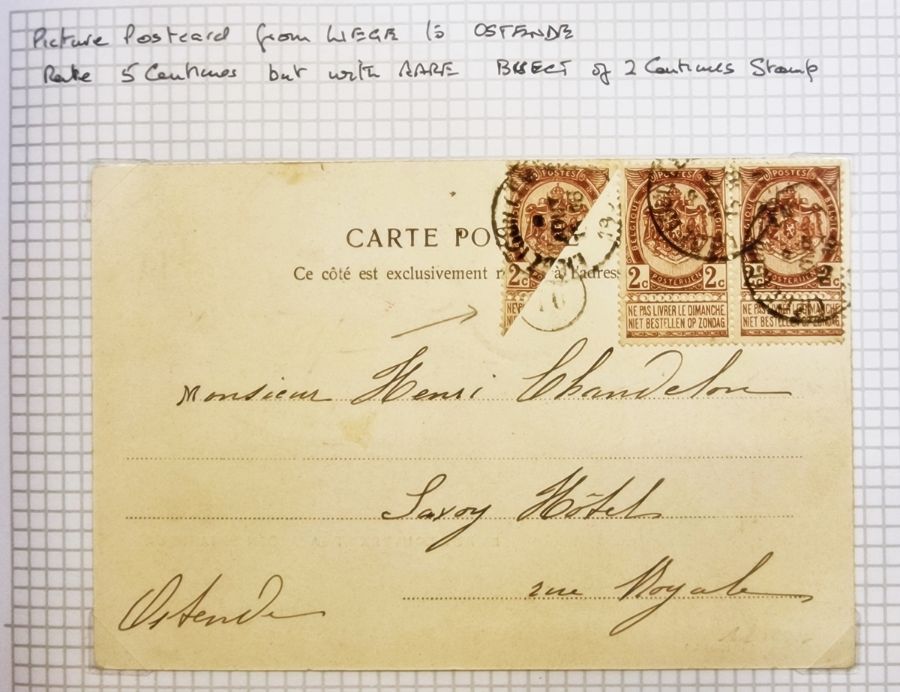 Picture Postcard from LIEGE to OSTENDE
Rate 5 Centimes but with RARE BISECT of 2 Centimes Stamp
POSTES
POSTES
POSTES
CARTE PO
BELGIQUE
Ce côté est exclusivement r à l'adress
2c
2c 2c
2c 2
POSTERIJEN
NE PAS LIVRER LE DIMANCHE
NIET BESTELLEN OP ZONDAG
NE PAS LIVRER LE DIMANCHE
NIET BESTELLEN OP ZONDAG
Monsieur Henri Chandelon
Savoy Hôtel
rue Royale
Ostende